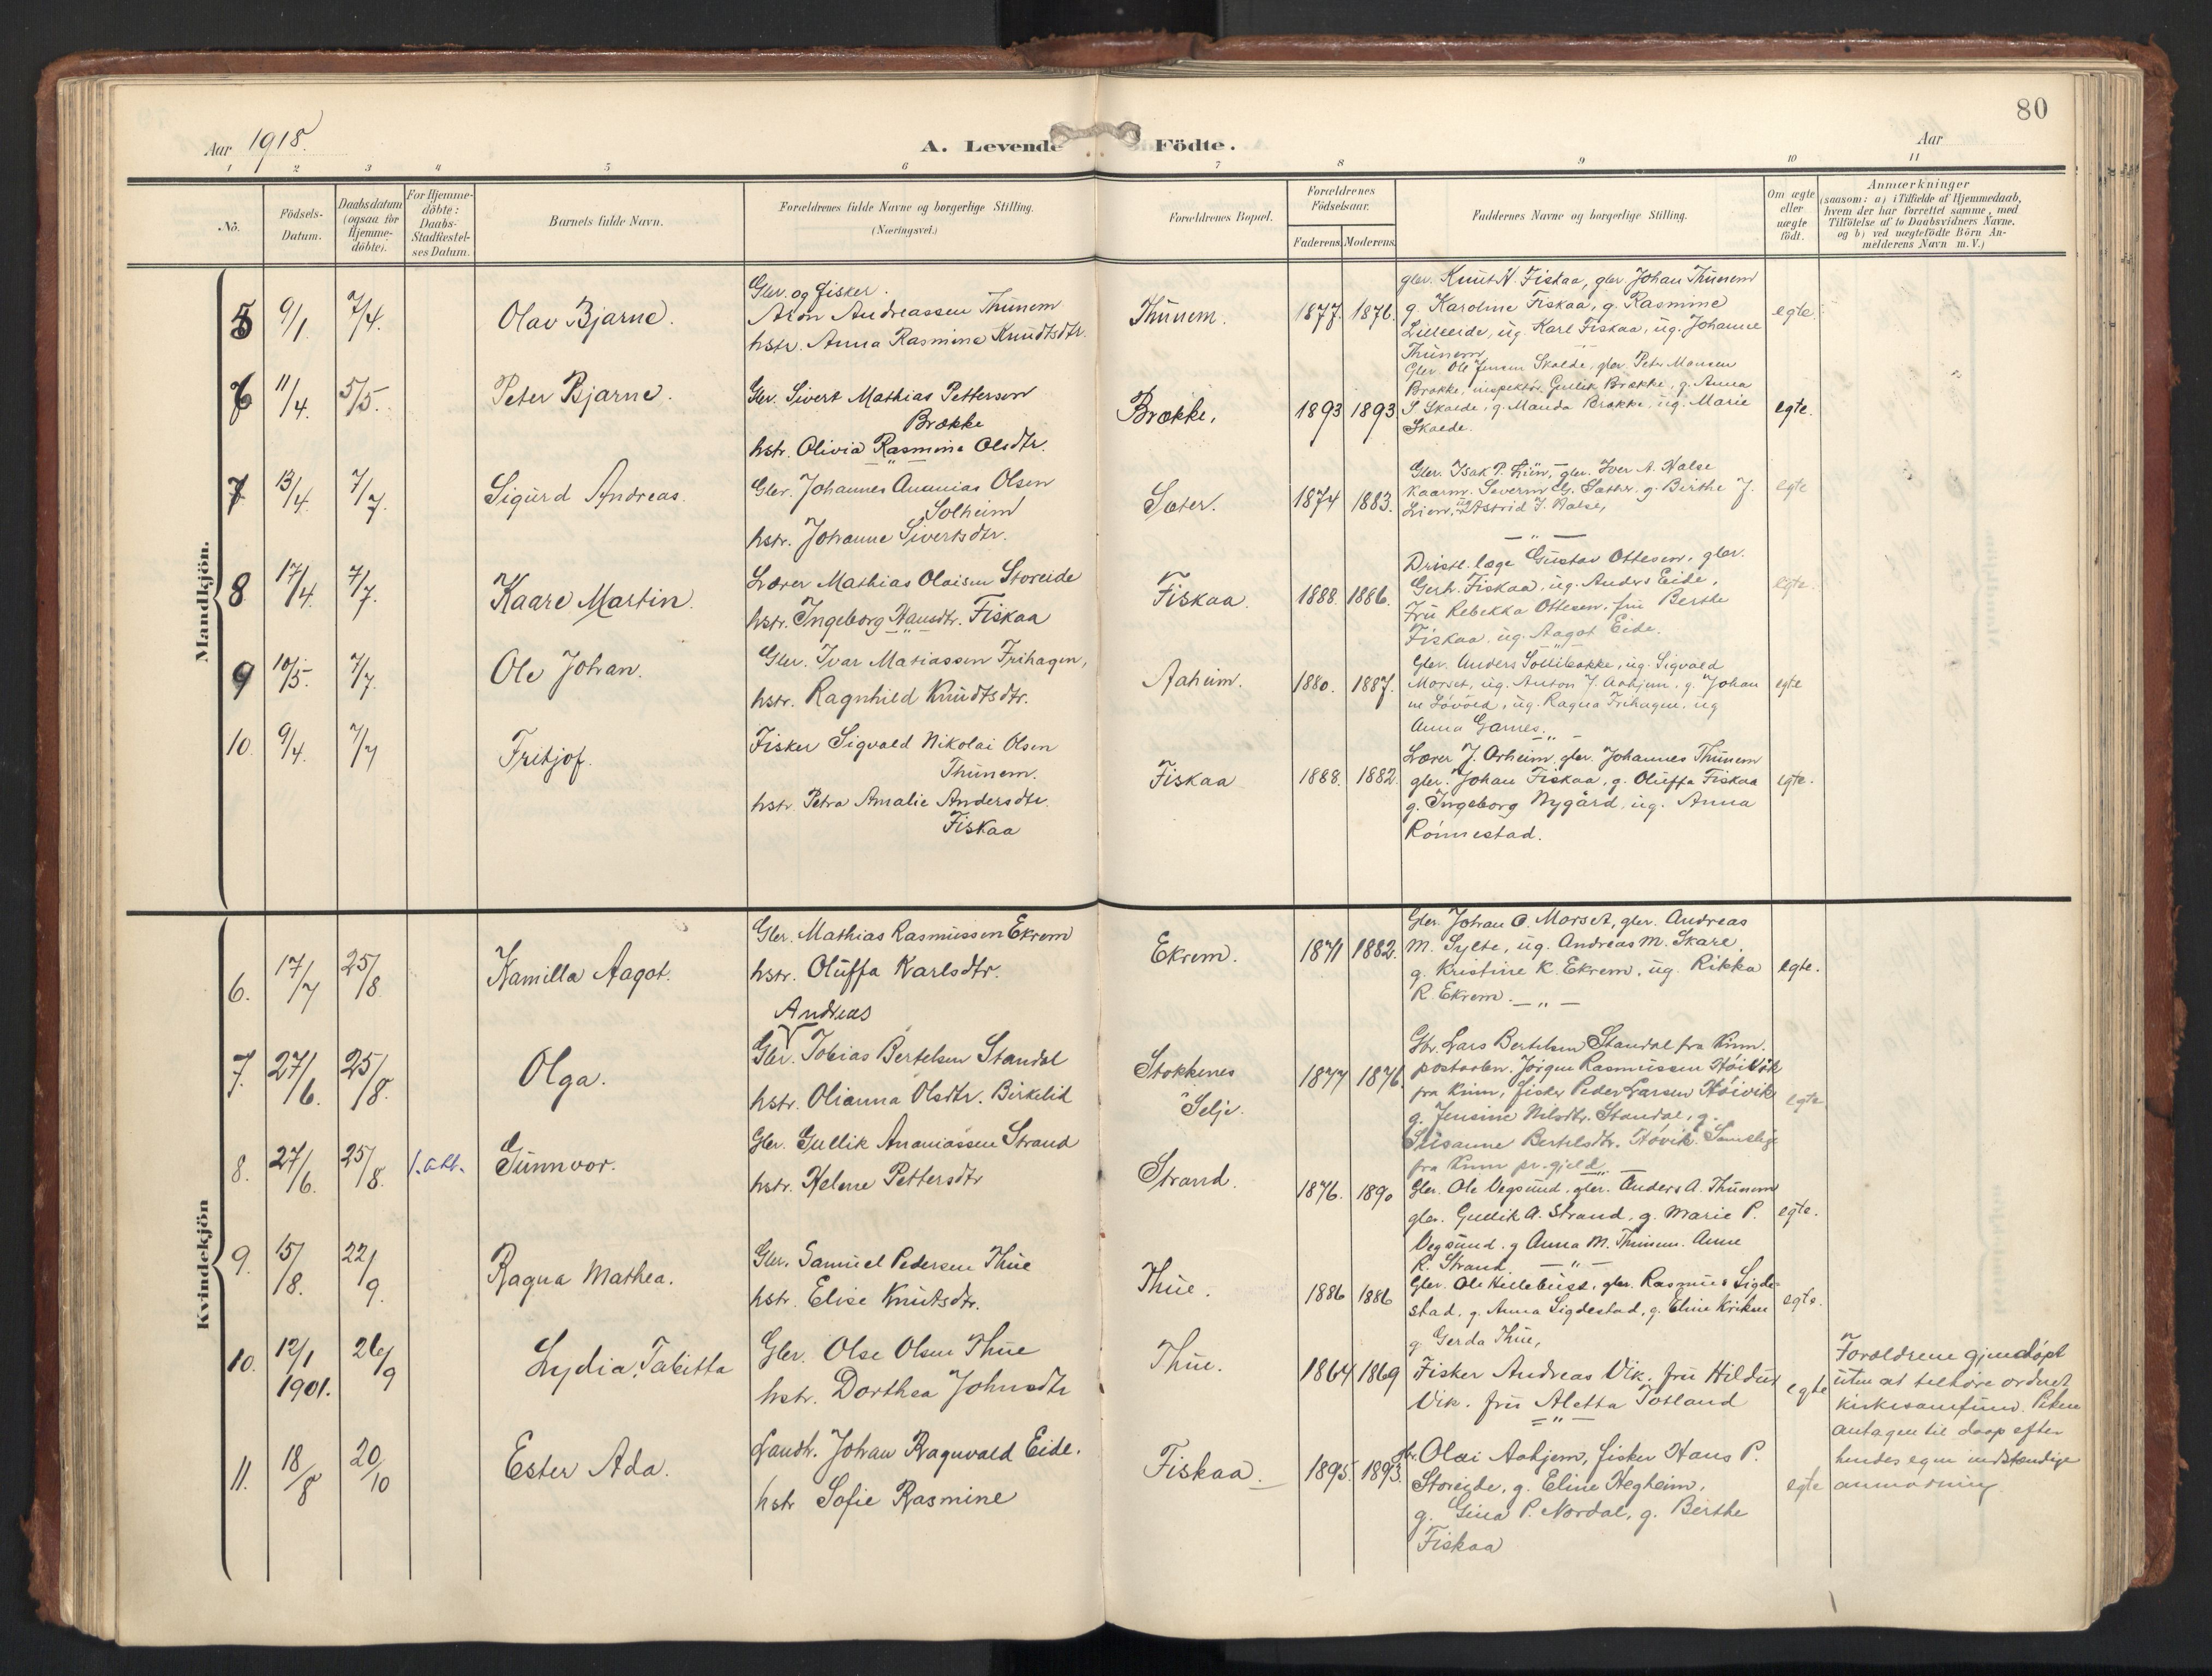 80
Aar 1918.
A. Levende Födte.
Aar
1 2 3 4 5 6 7 8 9 10 11
No.
Födsels-Datum.
Daabsdatum (ogsaa for Hjemme-döbte).
For Hjemme-döbte: Daabs-Stadfæstel-ses Datum.
Barnets fulde Navn.
Forældrenes fulde Navne og borgerlige Stilling.
(Næringsvei.)
Forældrenes Bopæl.
Forældrenes Födselsaar.
Faderens. Moderens.
Faddernes Navne og borgerlige Stilling.
Om ægte eller uægte födt.
Anmærkninger
(saasom: a) i Tilfælde af Hjemmedaab,
hvem der har forrettet samme, med
Tilföielse af to Daabsvidners Navne,
og b) ved uægtefödte Börn An-
melderens Navn m. V.)
Mandkjön.
5 9/1 7/4. Olav Bjarne.
Gbr. og fisker.
Aron Andreassen Thunem
hstr. Anna Rasmine Knudtsdtr.
Thunem. 1877. 1876.
gbr. Knut H. Fiskaa, gbr Johan Thunem
g. Karoline Fiskaa, g. Rasmine
Lilleeide, ug. Karl Fiskaa, ug. Johanne
Thunem
egte.
6 11/4. 5/5. Peter Bjarne.
Gbr. Sivert Mathias Petterson
Brække
hstr. Olivia Rasmine Olsdtr.
Brække. 1893 1893
Gbr. Ole Jensen Skalde, gbr Peter Monsen
Brække, inspektør Gullik Brække, g. Anna
S Skaede, g. Manda Brække, ug. Marie
Skaede.
egte.
7 13/4. 7/7. Sigurd Andreas.
Gbr. Johannes Ananias Olsen
Solheim
hstr. Johanne Sivertsdtr.
Sæter. 1874 1883.
Gbr. Isak P. Lien, gbr. Iver A. Halse
g. Birthe J.
Lien, ug Astrid J. Halse,
— " —
egte
8 17/4. 7/7. Kaare Martin.
Lærer Mathias Olaisen Storeide
hstr. Ingeborg Hansdtr. Fiskaa
Fiskaa. 1888. 1886.
Dristr. læge Gustav Ottesen, gbr.
Gerh. Fiskaa, ug. Anders Eide,
Fru Rebekka Ottesen, fru Berthe
Fiskaa, ug. Aagot Eide.
egte.
9 10/5. 7/7. Ole Johan.
Gbr. Ivar Matiassen Frihagen,
hstr. Ragnhild Knudtsdtr.
Aaheim. 1880. 1887.
Gbr. Anders Sollibakke, ug. Sigvald
Morset, ug. Anton J. Aahjem, g. Johan
ne Lövold, ug. Ragna Frihagen, ug
Anna Garnes.
egte
10. 9/4. 7/7 Fritjof.
Fisker Sigvald Nikolai Olsen
Thunem.
hstr. Petra Amalie Andersdtr.
Fiskaa
Fiskaa 1888. 1882.
Lærer J. Arheim, gbr. Johannes Thunem
gbr. Johan Fiskaa, g. Oluffa Fiskaa
g. Ingeborg Nygård, ug. Anna
Rönnestad.
egte.
Kvindekjön
6. 17/7 25/8 Kamilla Aagot.
Gbr. Mathias Rasmussen Ekrem
hstr. Oluffa Karlsdtr.
Ekrem. 1871 1882.
Gbr. Johan O. Morset, gbr. Andreas
M. Sylte, ug. Andreas M. Skare,
g. Kristine K. Ekrem, ug. Rikka
R. Ekrem. — " —
egte.
7. 27/6. 25/8. Olga.
Andreas
Gbr. Tobias Bertelsen Standal
hstr. Olianna Olsdtr. Birkelid
Stokkenes
Selje. 1877 1876.
Gbr. Lars Bertelsen Standal fra Kinn.
Jörgen Rasmussen Höivik
fra Kinn, fisker Peder Larsen Höivik
g. Jensine Nilsdtr. Standal, g.
Susanne Bertelsdtr. Hövik. Samtlige
fra Kinn pr.gjeld.
egte.
8. 27/6. 25/8. 1. okt. Gunnvor.
Gbr. Gullik Ananiassen Strand
hstr. Helene Pettersdtr
Strand. 1876. 1890
Gbr. Ole Vegsund, gbr. Anders A. Thunem
gbr. Gullik A. Strand, g. Marie P.
Vegsund. g Anna M. Thunem. Anne
R. Strand. — " —
egte.
9. 15/8. 22/9. Ragna Mathea.
Gbr. Samuel Pedersen Thue
hstr. Elise Knutsdtr.
Thue. 1886 1886
Gbr. Ole Hillebust, gbr. Rasmus Sigde-
stad, g. Anna Sigdestad, g. Eline Kriken
g. Gerda Thue,
egte.
10. 12/1 1901. 26/9 Lydia Tabitta
Gbr. Olse Olsen Thue
hstr. Dorthea Johnsdtr
Thue. 1864 1869
Fisker Andreas Vik, fru Hildur
Vik. fru Aletta Totland
— " —
egte
Forældrene gjendöpt
uten at tilhøre ordnet
kirkesamfund. Piken
antagen til daap efter
hendes egen indstændige
anmodning.
11. 18/8 20/10 Ester Ada.
Landh. Johan Ragnvald Eide.
hstr Sofie Rasmine
Fiskaa. 1895. 1893.
gbr. Olai Aahjem, fisker Hans P.
Storeide, g. Eline Hegheim,
g. Gina P. Nordal, g. Berthe
Fiskaa
egte